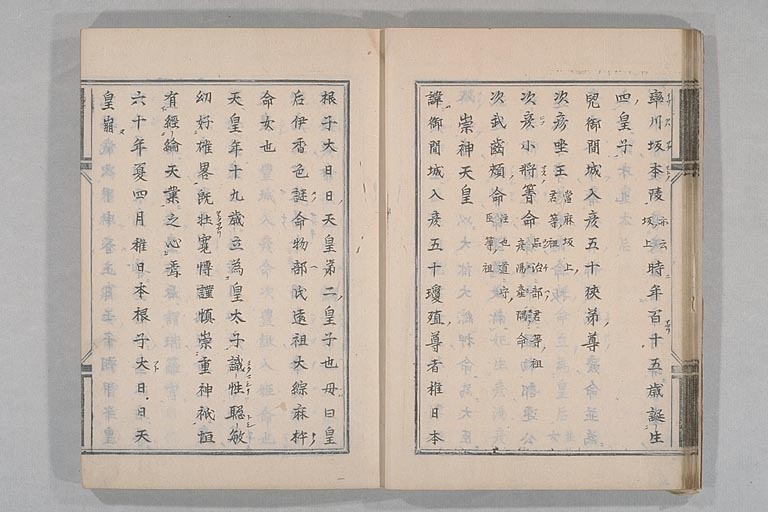 率川坂本陵 亦云坂上 時年百十五歳誕生
四皇子
兒御間城入彦五十狹茅尊
次彦坐王 當麻坂上君等祖
次彦小將簀命 品治部君等祖
次武齒頬命
崇神天皇
諱御間城入彦五十瓊殖尊者稚日本
根子大日日天皇第二皇子也母曰皇
后伊香色謎命物部氏遠祖大綜麻杵
命女也
天皇年十九歳立為皇太子識性聡敏
幼好雄畧既壮寛愽謹慎崇重神祇恒
有經綸天業之心焉
六十年夏四月稚日本根子大日日天
皇崩